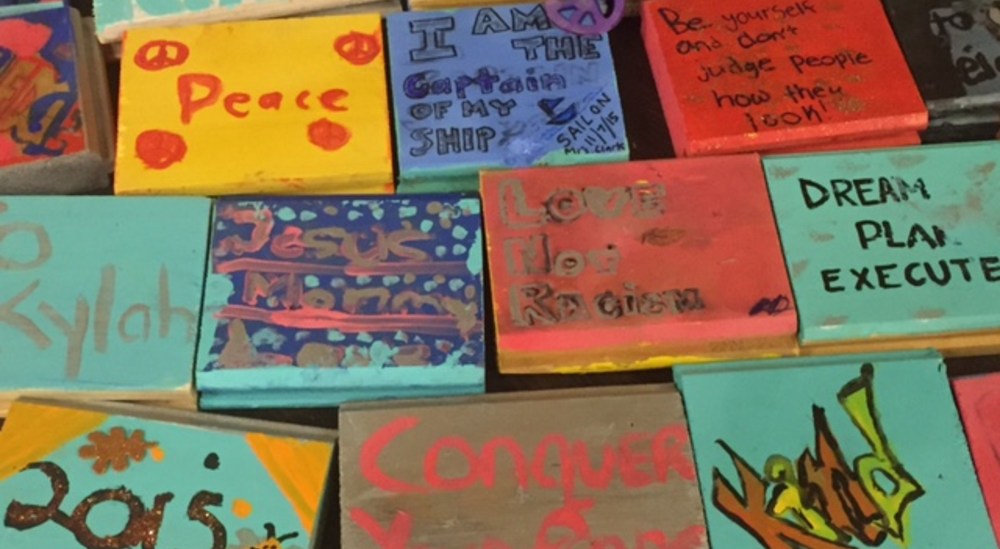 Peace
I AM
THE
Captain
OF MY
SHIP
SAIL ON
11/17/15
Be yourself
and don't
judge people
how they
look!
Kylah
Jesus
Mommy
Love
Not
Racism
DREAM
PLAN
EXECUTE
2015
CONQUER
Kind